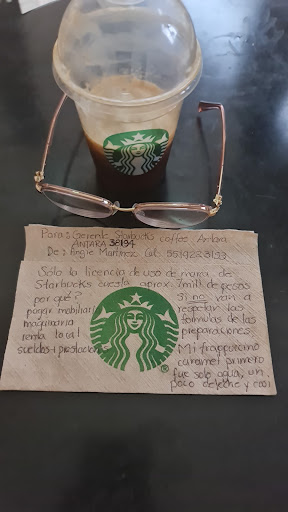 Para: Gerente Starbucks coffee Antara
ANTARA 38134
De: Angie Martinez Cel. 5519223133
Solo la licencia de uso de marca de
Starbucks cuesta aprox. 7 mill de pesos
por qué? Si no van a
pagar mobiliario respetar las
maquinaria formulas de las
renta local preparaciones
sueldos + prestaciones Mi frappuccino
caramel primero
fue solo agua, un
poco de leche y casi